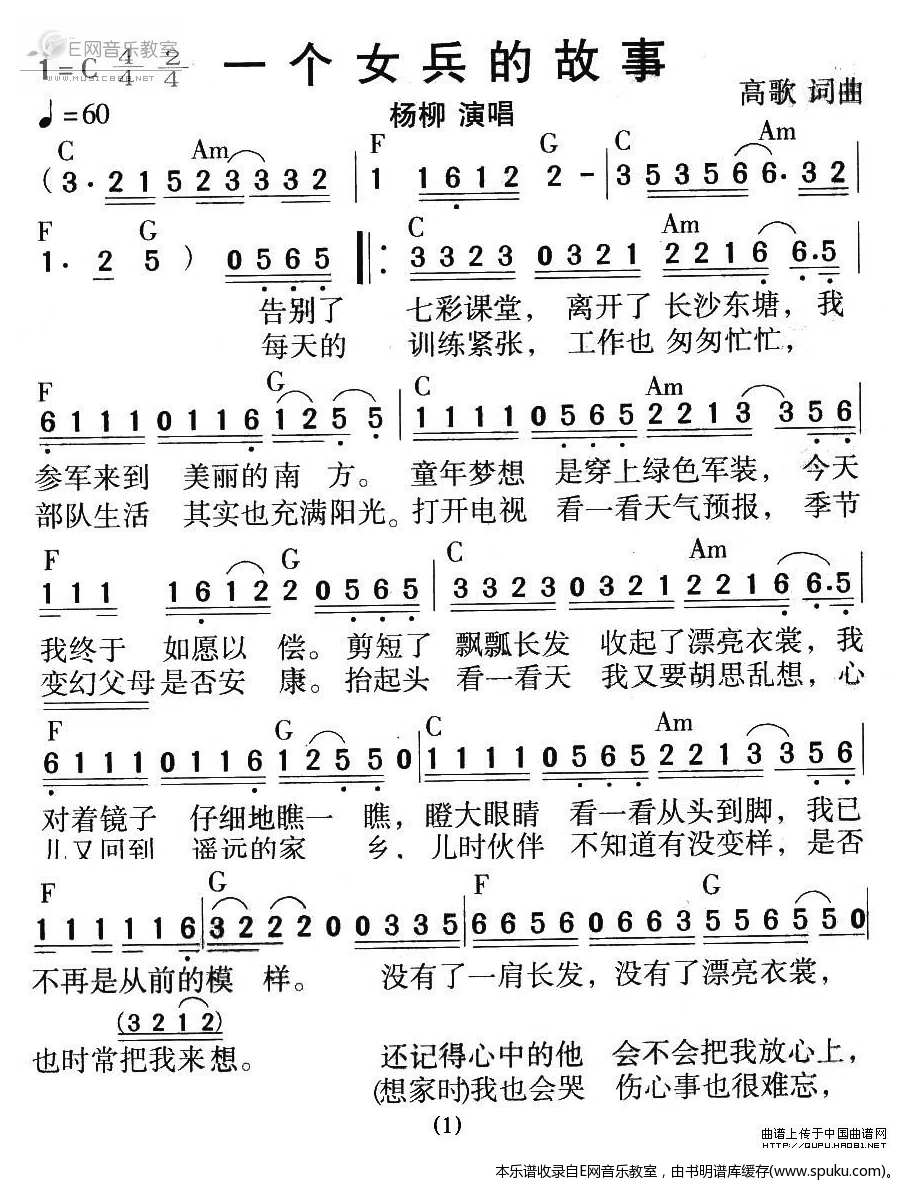 E网音乐教室
WWW.MUSIC8.NET
1=C 4/4 2/4
一个女兵的故事
高歌 词曲
♩=60
杨柳 演唱
C Am F G C Am
(3·2152333332 | 1 1612 2 - | 3 53566·32
F G C Am
1·2 5) 0565 ‖: 3323 0321 2216 6·5
告别了 七彩课堂， 离开了 长沙东塘， 我
每天的 训练紧张， 工作也 匆匆忙忙，
F G C Am
6111 0116 125 5 | 1111 0565 2213 356
参军来到 美丽的南 方。 童年梦想 是穿上绿色军装， 今天
部队生活 其实也充满阳光。打开电视 看一看天气预报， 季节
F G C Am
111 1612 2 0565 | 3323 0321 2216 6·5
我终于 如愿以 偿。 剪短了 飘瓢长发 收起了漂亮衣裳， 我
变幻父母是否安 康。抬起头 看一看天 我又要胡思乱想， 心
F G C Am
6111 0116 1255 0 | 1111 0565 2213 356
对着镜子 仔细地瞧一 瞧， 瞪大眼睛 看一看从头到脚， 我已
儿又回到 遥远的家 乡， 儿时伙伴 不知道有没变样， 是否
F G F G
111 116 | 3222 0 0335 | 6656 0663 5565 550
不再是从前的模 样。 没有了一肩长发， 没有了漂亮衣裳，
(3212)
也时常把我来想。 还记得心中的他 会不会把我放心上，
(想家时)我也会哭 伤心事也很难忘，
(1)
曲谱上传于中国曲谱网
HTTP://QUPU.HAO81.NET
本乐谱收录自E网音乐教室，由书明谱库缓存(www.spuku.com)。